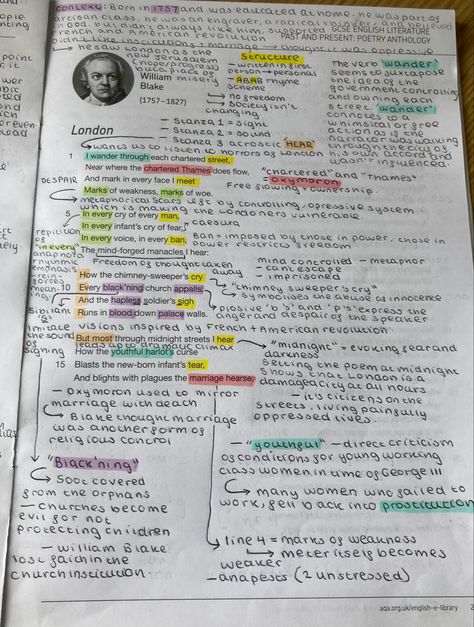 context: Born in 1757 and was educated at home. He was part of
artisan class. He was an engraver, a radical
GCSE ENGLISH LITERATURE
PAST AND PRESENT: POETRY ANTHOLOGY
French and American revolution
marriage → thought it was oppressive
he saw London as the
new Jerusalem
place of
misery
William
Blake
(1757–1827)
Structure
- written in first
person → personal
- ABAB rhyme
scheme
↳ no freedom
↳ society isn't
changing
The verb 'wander'
seems to juxtapose
the idea of the
government controlling
and owning each
street 'wander'
connotes to a
whimsical or free
action as if the
narrator was walking
through the city of
his own accord and
wasn't influenced.
- Stanza 1 = sight
- Stanza 2 = sound
- Stanza 3 acrostic 'HEAR'
London
wants us to listen to horrors of London
1 I wander through each chartered street,
Near where the chartered Thames does flow,
And mark in every face I meet
Marks of weakness, marks of woe.
"chartered" and "Thames"
= oxymoron
Free flowing + ownership
DESPAIR
metaphorical scars left by controlling, opressive system
which is making the Londoners vulnerable.
5 In every cry of every man,
In every infant's cry of fear,
In every voice, in every ban,
The mind-forged manacles I hear:
caesura
Ban = imposed by those in power, those in
power restricts freedom
"in every"
anaphora
rhythmic
emphasis
Freedom of thought taken
away
mind controlled - metaphor
- cant escape
- imprisoned
How the chimney-sweeper's cry
10 Every black'ning church appalls,
And the hapless soldier's sigh
Runs in blood down palace walls.
"chimney sweeper's cry"
symbolises the abuse of innocence
plosive 'b's' and 'p's' express the
anger and despair of the speaker
Imitate
the sound
of
sighing
visions inspired by French + American revolution
leads up to dramatic climax
But most through midnight streets I hear
How the youthful harlot's curse
15 Blasts the new-born infant's tear,
And blights with plagues the marriage hearse.
"midnight" = evoking fear and
darkness
Setting the poem at midnight
shows that London is a
damaged city at all hours
- it's citizens on the
streets, living painfully
oppressed lives.
- oxymoron used to mirror
marriage with death
↳ Blake thought marriage
was another form of
religious control
- "youthful" - direct criticism
of conditions for young working
class women in time of George III
↳ many women who failed to
work, fell back into prostitution
"Black'ning"
↳ soot covered
from the orphans
- churches become
evil for not
protecting children
- William Blake
lost faith in the
church institution.
line 4 = marks of weakness
↳ meter itself becomes
weaker
- anapests (2 unstressed)
aqa.org.uk/english-e-library